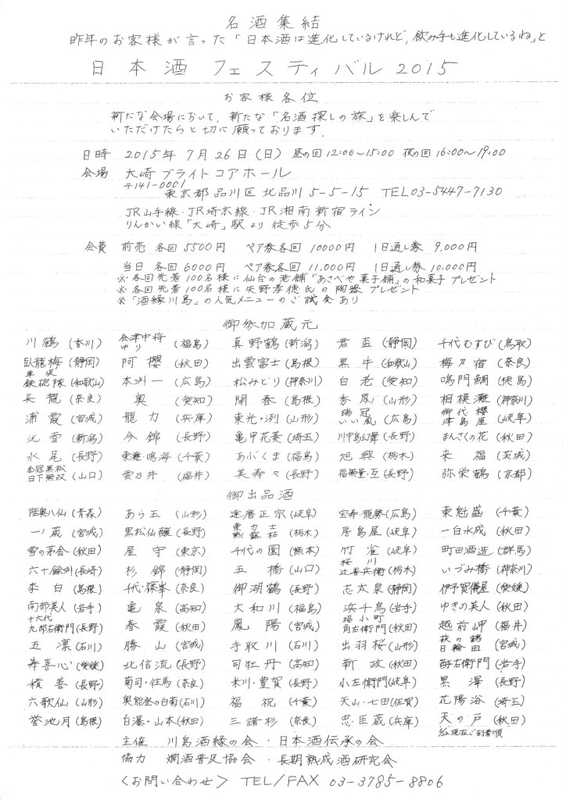 名酒集結
昨年のお客様が言った「日本酒は進化しているけれど、飲み手も進化しているね」と
日本酒フェスティバル2015
お客様各位
新たな会場において、新たな「名酒探しの旅」を楽しんで
いただけたらと切に願っております。
日時 2015年7月26日(日) 昼の回12:00〜15:00 夜の回16:00〜19:00
会場 大崎ブライトコアホール
〒141-0001
東京都品川区北品川5-5-15 TEL03-5447-7130
JR山手線・JR埼京線・JR湘南新宿ライン
りんかい線「大崎」駅より徒歩5分
会費 前売 各回5500円 ペア券各回10000円 1日通し券9,000円
当日 各回6000円 ペア券各回11,000円 1日通し券10,000円
※各回先着100名様に仙台の老舗「あさべや菓子舗」の和菓子プレゼント
※各回先着100名様に矢野孝徳氏の陶器プレゼント
※「酒縁川島」の人気メニューのご試食あり
御参加蔵元
川鶴(香川) 会津中将 ゆり(福島) 真野鶴(新潟) 君盃(静岡) 千代むすび(鳥取)
臥龍梅(静岡) 阿櫻(秋田) 出雲富士(島根) 黒牛(和歌山) 梅乃宿(奈良)
車坂 鉄砲隊(和歌山) 本洲一(広島) 松みどり(神奈川) 白老(愛知) 鳴門鯛(徳島)
長龍(奈良) 奥(愛知) 開春(島根) 秀鳳(山形) 相模灘(神奈川)
浦霞(宮城) 龍力(兵庫) 東光・洌(山形) 瑞冠 いい風(広島) 御代櫻 津島屋(岐阜)
北雪(新潟) 今錦(長野) 亀甲花菱(埼玉) 川中島幻舞(長野) まんさくの花(秋田)
水尾(長野) 東薫・鳴海(千葉) あぶくま(福島) 旭興(栃木) 来福(茨城)
金冠黒松 日下無双(山口) 雲乃井(福井) 美寿々(長野) 福無量・互(長野) 弥栄鶴(京都)
御出品酒
陸奥八仙(青森) あら玉(山形) 達磨正宗(岐阜) 宝寿・龍勢(広島) 東魁盛(千葉)
一ノ蔵(宮城) 黒松仙醸(長野) 東力士(栃木) 房島屋(岐阜) 一白水成(秋田)
雪の茅舎(秋田) 屋守(東京) 千代の園(熊本) 竹雀(岐阜) 町田酒造(群馬)
六十餘洲(長崎) 杉錦(静岡) 五橋(山口) 桜川 辻善兵衛(栃木) いづみ橋(神奈川)
李白(島根) 千代・篠峯(奈良) 御湖鶴(長野) 志太泉(静岡) 伊予賀儀屋(愛媛)
南部美人(岩手) 亀泉(高知) 大和川(福島) 浜千鳥(岩手) ゆきの美人(秋田)
十六代 九郎右衛門(長野) 春霞(秋田) 鳳陽(宮城) 福小町 角右衛門(秋田) 越前岬(福井)
五凛(石川) 勝山(宮城) 手取川(石川) 出羽桜(山形) 萩の鶴 日輪田(宮城)
寿喜心(愛媛) 北信流(長野) 司牡丹(高知) 新政(秋田) 酉右衛門(岩手)
積善(長野) 菊司・往馬(奈良) 米川・豊賀(長野) 小左衛門(岐阜) 黒澤(長野)
六歌仙(山形) 奥能登の白菊(石川) 福祝(千葉) 天山・七田(佐賀) 花陽浴(埼玉)
誉池月(島根) 白瀑・山本(秋田) 三諸杉(奈良) 忠臣蔵(兵庫) 天の戸(秋田)
主催 川島酒縁の会・日本酒伝承の会
協力 燗酒普及協会・長期熟成酒研究会
〈お問い合わせ〉 TEL/FAX 03-3785-8806